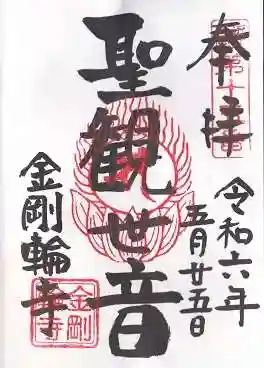 奉拝
令和六年
五月廿五日
聖観世音
金剛輪寺
金剛
輪寺